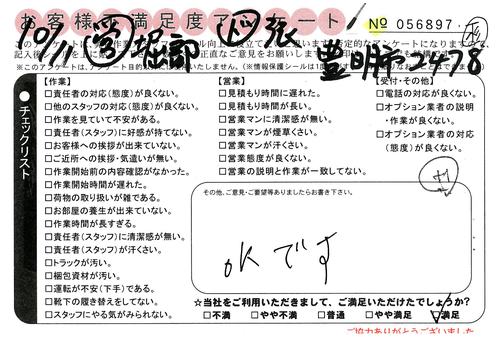 お客様満足度アンケート
№ 056897
堀部
豊明 2478
※このアンケートは、アンケート目的
チェックリスト
【作業】
□責任者の対応(態度)が良くない。
□他のスタッフの対応(態度)が良くない。
□作業を見ていて不安がある。
□責任者(スタッフ)に好感が持てない。
□お客様への挨拶が出来ていない。
□ご近所への挨拶・気遣いが無い。
□作業開始前の内容確認がなかった。
□作業開始時間が遅れた。
□荷物の取り扱いが雑である。
□お部屋の養生が出来ていない。
□作業時間が長すぎる。
□責任者(スタッフ)に清潔感が無い。
□責任者(スタッフ)が汗くさい。
□トラックが汚い。
□梱包資材が汚い。
□運転が不安(下手)である。
□靴下の履き替えをしてない。
□スタッフにやる気がみられない。
【営業】
□見積もり時間に遅れた。
□見積もり時間が長い。
□営業マンに清潔感が無い。
□営業マンが煙草くさい。
□営業マンが汗くさい。
□営業態度が良くない。
□営業の説明と作業が一致してない。
【受付・その他】
□電話の対応が良くない。
□オプション業者の説明
・作業が良くない。
□オプション業者の対応
(態度)が良くない。
その他、ご意見・ご要望等ありましたらお書き下さい。
OKです
☆当社をご利用いただきまして、ご満足いただけたでしょうか?
□不満 □やや不満 □普通 □やや満足 □満足
ご協力ありがとうございました